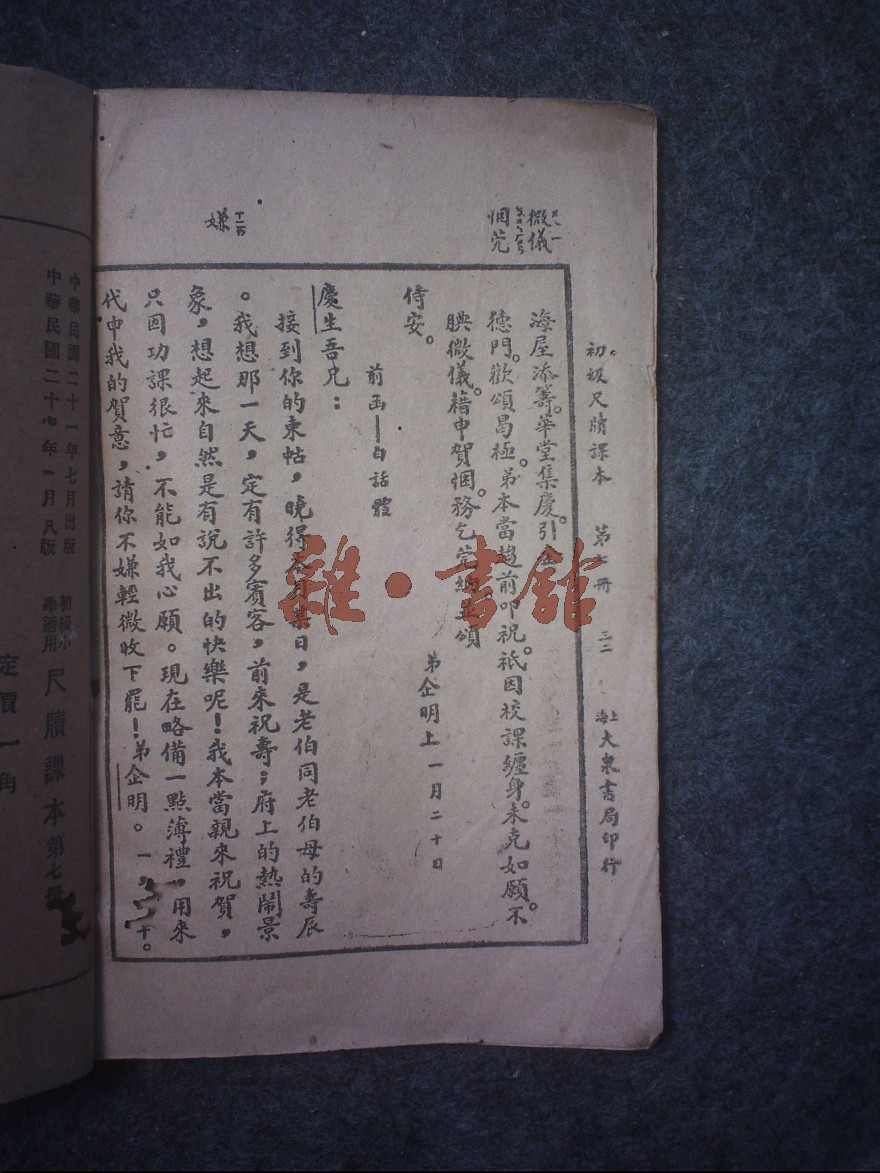 初級尺牘課本 第七冊 三二 上海大衆書局印行
微儀
悃莞
嫌
海屋添籌。華堂集慶。引企
德門。歡頌曷極。弟本當趨前叩祝。祇因校課纏身。未克如願。不
腆微儀。藉申賀悃。務乞莞納並頌
侍安。
弟企明上 一月二十日
前函——白話體
慶生吾兄：
接到你的柬帖，曉得本月某日，是老伯同老伯母的壽辰
。我想那一天，定有許多賓客，前來祝壽；府上的熱鬧景
象，想起來自然是有說不出的快樂呢！我本當親來祝賀，
只因功課很忙，不能如我心願。現在略備一點薄禮，用來
代申我的賀意，請你不嫌輕微收下罷！弟企明。一，二十。
中華民國二十一年七月出版
中華民國二十七年一月八版
初級小學適用 尺牘課本第七冊
定價一角
雜·書館